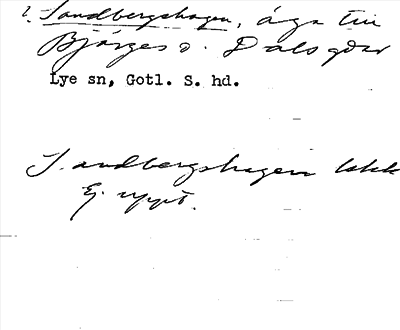 2. Sandbergshagen, äga till
Bjärges o. Dals gdar
Lye sn, Gotl. S. hd.
Sandbergshagen
Ej uppt.